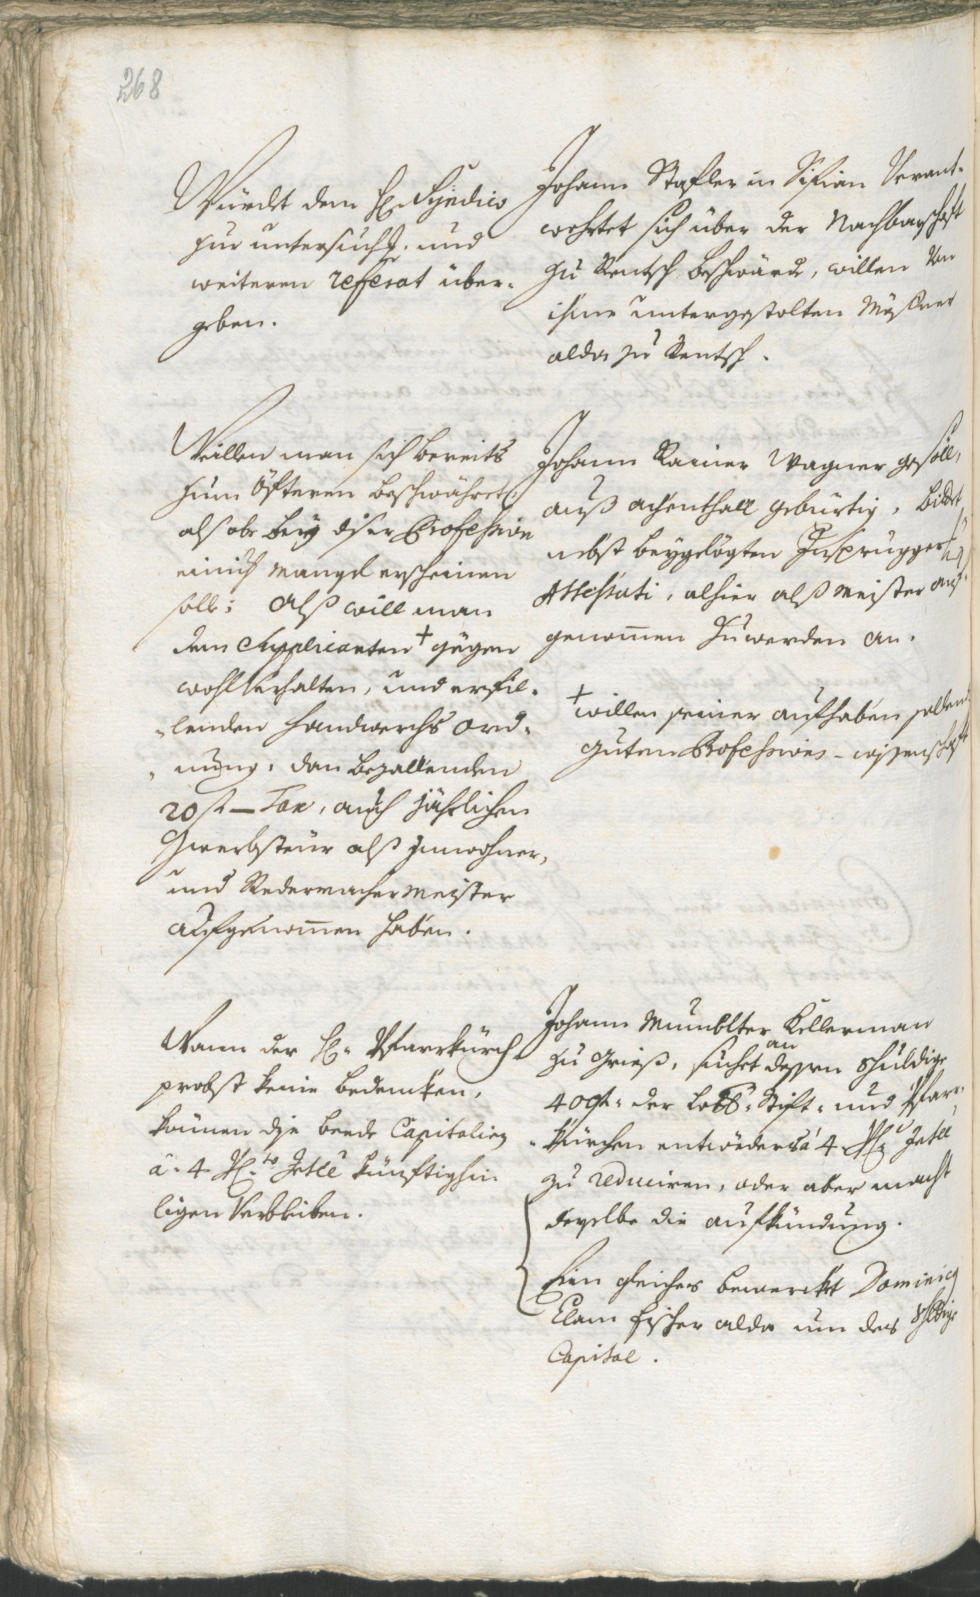 268
Würdt dem H: Syndico
zur untersuch: und
weiteren referat über-
geben.
Johann Stafler in Sifian Verant-
wohrtet sich über der Nachbarschafft
zu Rentsch beschwärde, willen Von
ihme untergestolten Mössner
alda zu Rentsch.
Weillen man sich bereits
zum öffteren beschwähret,
als obe bey diser Profession
einich mangel erscheinen
solle: Alß will man
dem Supplicanten + gegen
wohl Verhalten, und erfil-
lenden Handwerchs ord-
nung, dan bezallenden
20 f Tax, auch jährlichen
Gwerbsteur alß innwohner,
und Redermacher Meister
aufgenommen haben.
Johann Rainer Wagner gesöll,
auß Achenthall gebürtig, bidet
nebst beygelögten Insprugger
Attestati, alhier alß Meister auf-
genommen zu werden an.
+ willen seiner aufhaben sollend
guten Professions-wissenschafft
Wann der H: Pfarrkürch
probst keine bedencken,
können dye beede Capitalien
â 4 Pf: to Zetle künftighin
ligen Verbleiben.
Johann Mumblter Kellerman
zu Grieß, suchet an dessen schuldige
400 f: der Lobl: Stift- und Pfarr-
kürchen entwöders â 4 Pf: Zetle
zu reduciren, oder aber macht
derselbe die aufkündung.
Ein gleiches bemerckt Dominicg
Clam fischer alda um das schldige
Capital.